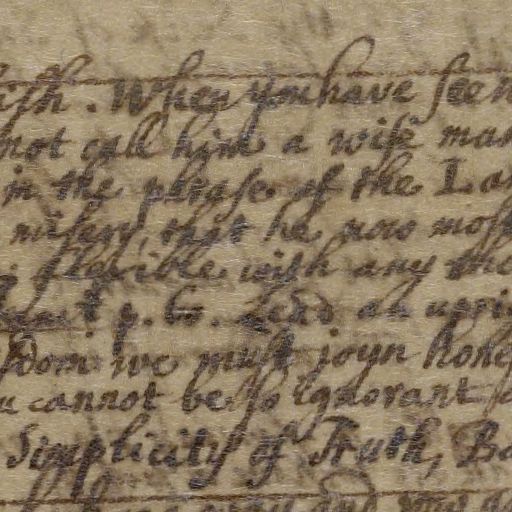 . When you have seen
not call him a wise man
in the phrase of the La
misery, that he now most
flexible with any the
p. 60. Lead an upri
sdom we must joyn hones
u cannot be so ignorant
Simplicity of Truth, Ba